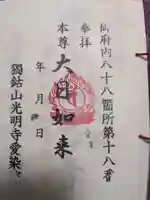 仙府内八十八箇所第十八番
奉拝
本尊 大日如来
年 月 日
獨鈷山光明寺愛染